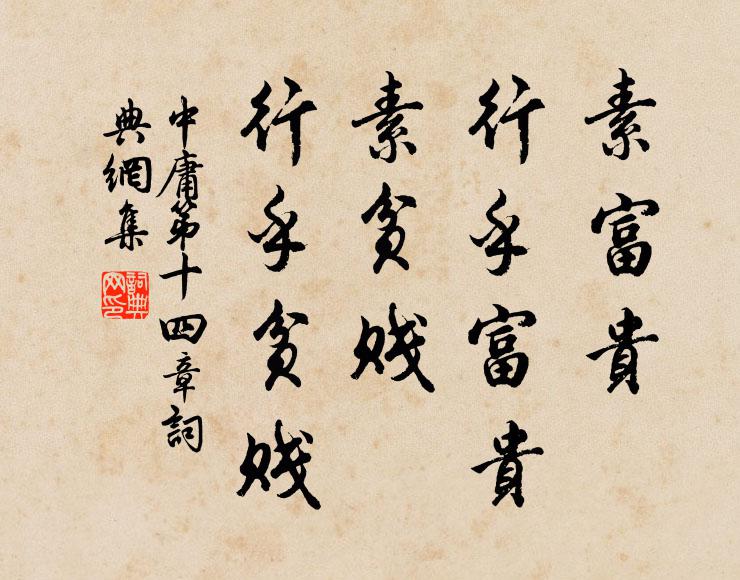 素富貴
行乎富貴
素貧賤
行乎貧賤
中庸第十四章詞
典網集
詞典
网印